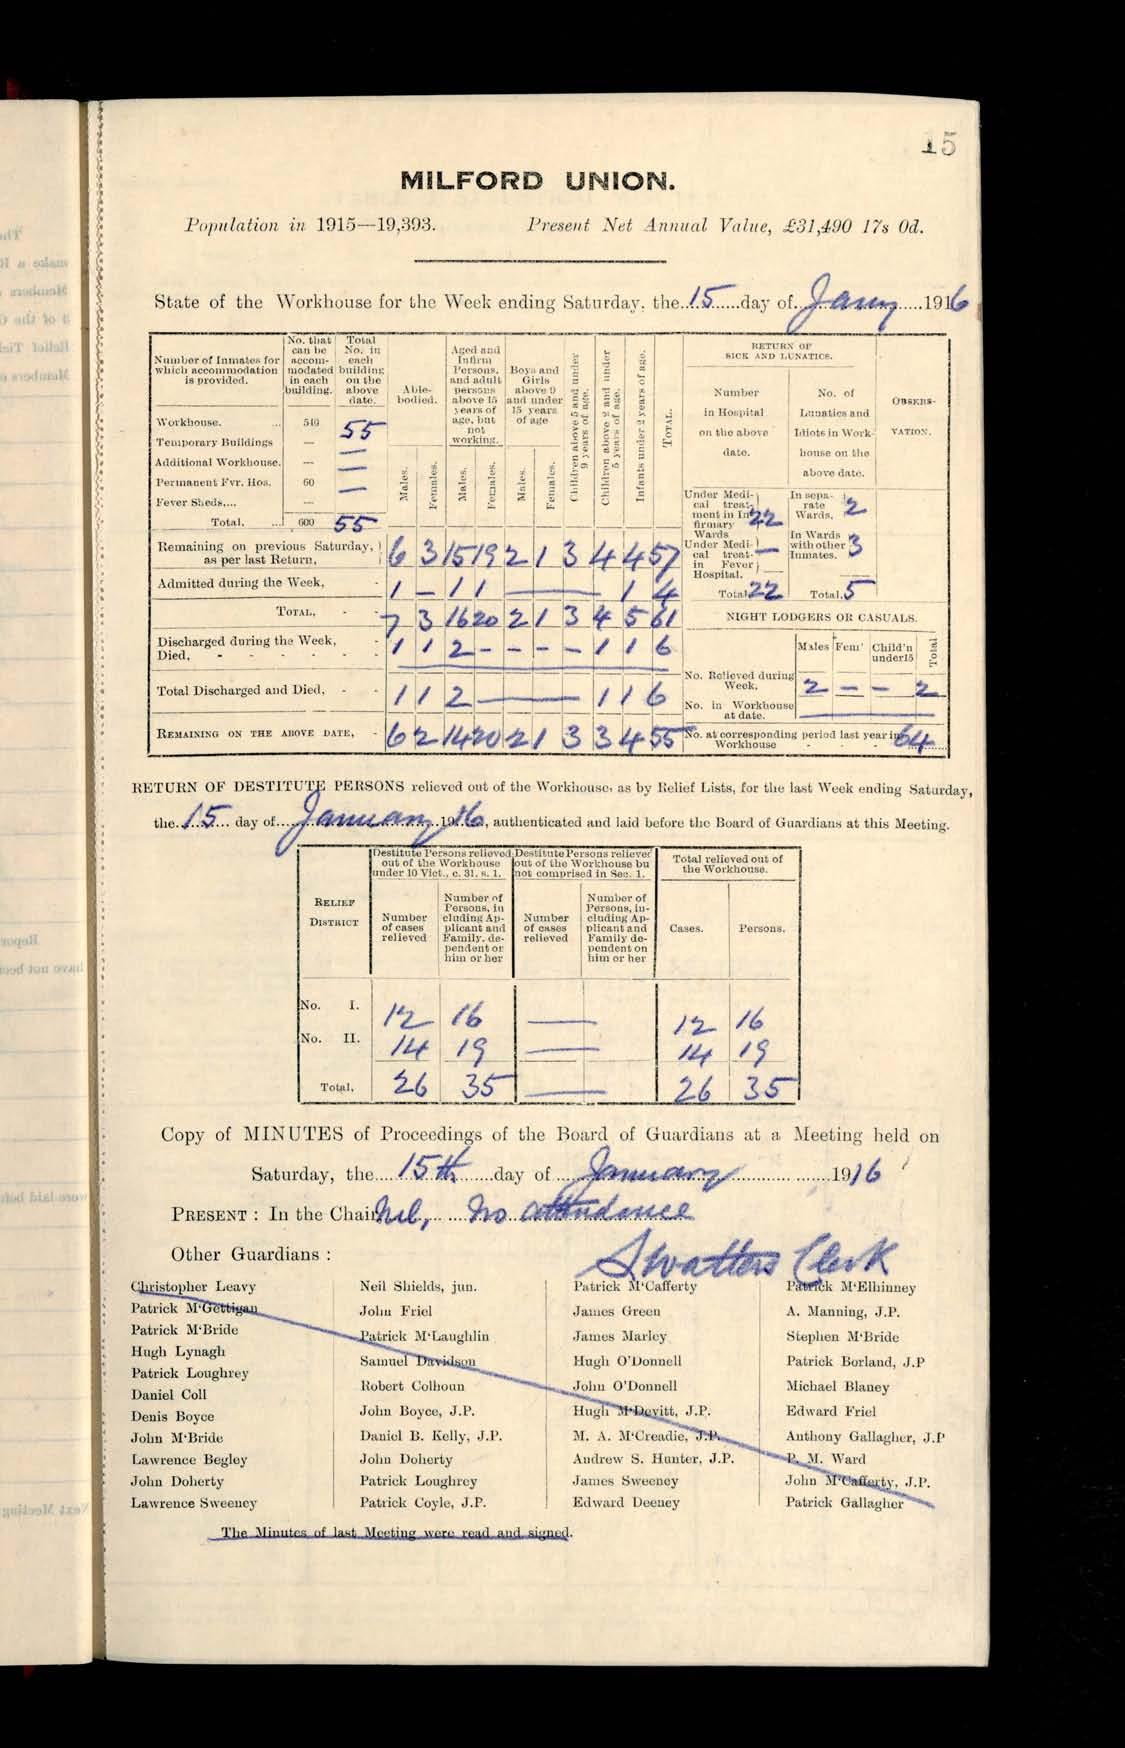 15
MILFORD UNION.
Population in 1915—19,393. Present Net Annual Value, £31,490 17s 0d.
State of the Workhouse for the Week ending Saturday, the 15 day of Jany 1916
Number of Inmates for which accommodation is provided. No. that can be accommodated in each building. Total No. in each building on the above date. Able-bodied. Aged and Infirm Persons, and adult persons above 15 years of age, but not working. Boys and Girls above 9 and under 15 years of age Children above 5 and under 9 years of age. Children above 2 and under 5 years of age. Infants under 2 years of age. TOTAL. RETURN OF SICK AND LUNATICS. OBSERVATION.
Males. Females. Males. Females. Males. Females.
Number in Hospital on the above date. No. of Lunatics and Idiots in Workhouse on the above date.
Workhouse. ... 540 55
Temporary Buildings — —
Additional Workhouse. — —
Permanent Fvr. Hos. 60 —
Fever Sheds,... —
Total, ... 600 55
Under Medical treatment in Infirmary Wards 22 In separate Wards, 2
Under Medical treat- in Fever Hospital. — In Wards with other Inmates. 3
Total 22 Total, 5
Remaining on previous Saturday, as per last Return, 6 3 15 19 2 1 3 4 4 57
Admitted during the Week, - 1 – 1 1 — 1 4
TOTAL, - - 7 3 16 20 2 1 3 4 5 61
Discharged during the Week, - 1 1 2 – – – – 1 1 6
Died, - - - - - -
Total Discharged and Died, - - 1 1 2 — 1 1 6
REMAINING ON THE ABOVE DATE, - 6 2 14 20 2 1 3 3 4 55
NIGHT LODGERS OR CASUALS.
Males Fem' Child'n under 15 Total
No. Relieved during Week. 2 – – 2
No. in Workhouse at date. —
No. at corresponding period last year in Workhouse - - - 64
RETURN OF DESTITUTE PERSONS relieved out of the Workhouse, as by Relief Lists, for the last Week ending Saturday,
the 15 day of January 1916, authenticated and laid before the Board of Guardians at this Meeting.
RELIEF DISTRICT Destitute Persons relieved out of the Workhouse under 10 Vict., c. 31. s. 1. Destitute Persons relieved out of the Workhouse bu not comprised in Sec. 1. Total relieved out of the Workhouse.
Number of cases relieved Number of Persons, including Applicant and Family, dependent or him or her Number of cases relieved Number of Persons, including Applicant and Family dependent on him or her Cases. Persons.
No. I. 12 16 — 12 16
No. II. 14 19 — 14 19
Total, 26 35 — 26 35
Copy of MINUTES of Proceedings of the Board of Guardians at a Meeting held on
Saturday, the 15th day of January 1916
PRESENT : In the Chair Nil, No attendance
Other Guardians : S Watters Clerk
Christopher Leavy
Patrick M'Gettigan
Patrick M'Bride
Hugh Lynagh
Patrick Loughrey
Daniel Coll
Denis Boyce
John M'Bride
Lawrence Begley
John Doherty
Lawrence Sweeney
Neil Shields, jun.
John Friel
Patrick M'Laughlin
Samuel Davidson
Robert Colhoun
John Boyce, J.P.
Daniel B. Kelly, J.P.
John Doherty
Patrick Loughrey
Patrick Coyle, J.P.
Patrick M'Cafferty
James Green
James Marley
Hugh O'Donnell
John O'Donnell
Hugh M'Devitt, J.P.
M. A. M'Creadie, J.P.
Andrew S. Hunter, J.P.
James Sweeney
Edward Deeney
Patrick M'Elhinney
A. Manning, J.P.
Stephen M'Bride
Patrick Borland, J.P
Michael Blaney
Edward Friel
Anthony Gallagher, J.P
P. M. Ward
John M'Cafferty, J.P.
Patrick Gallagher
The Minutes of last Meeting were read and signed.